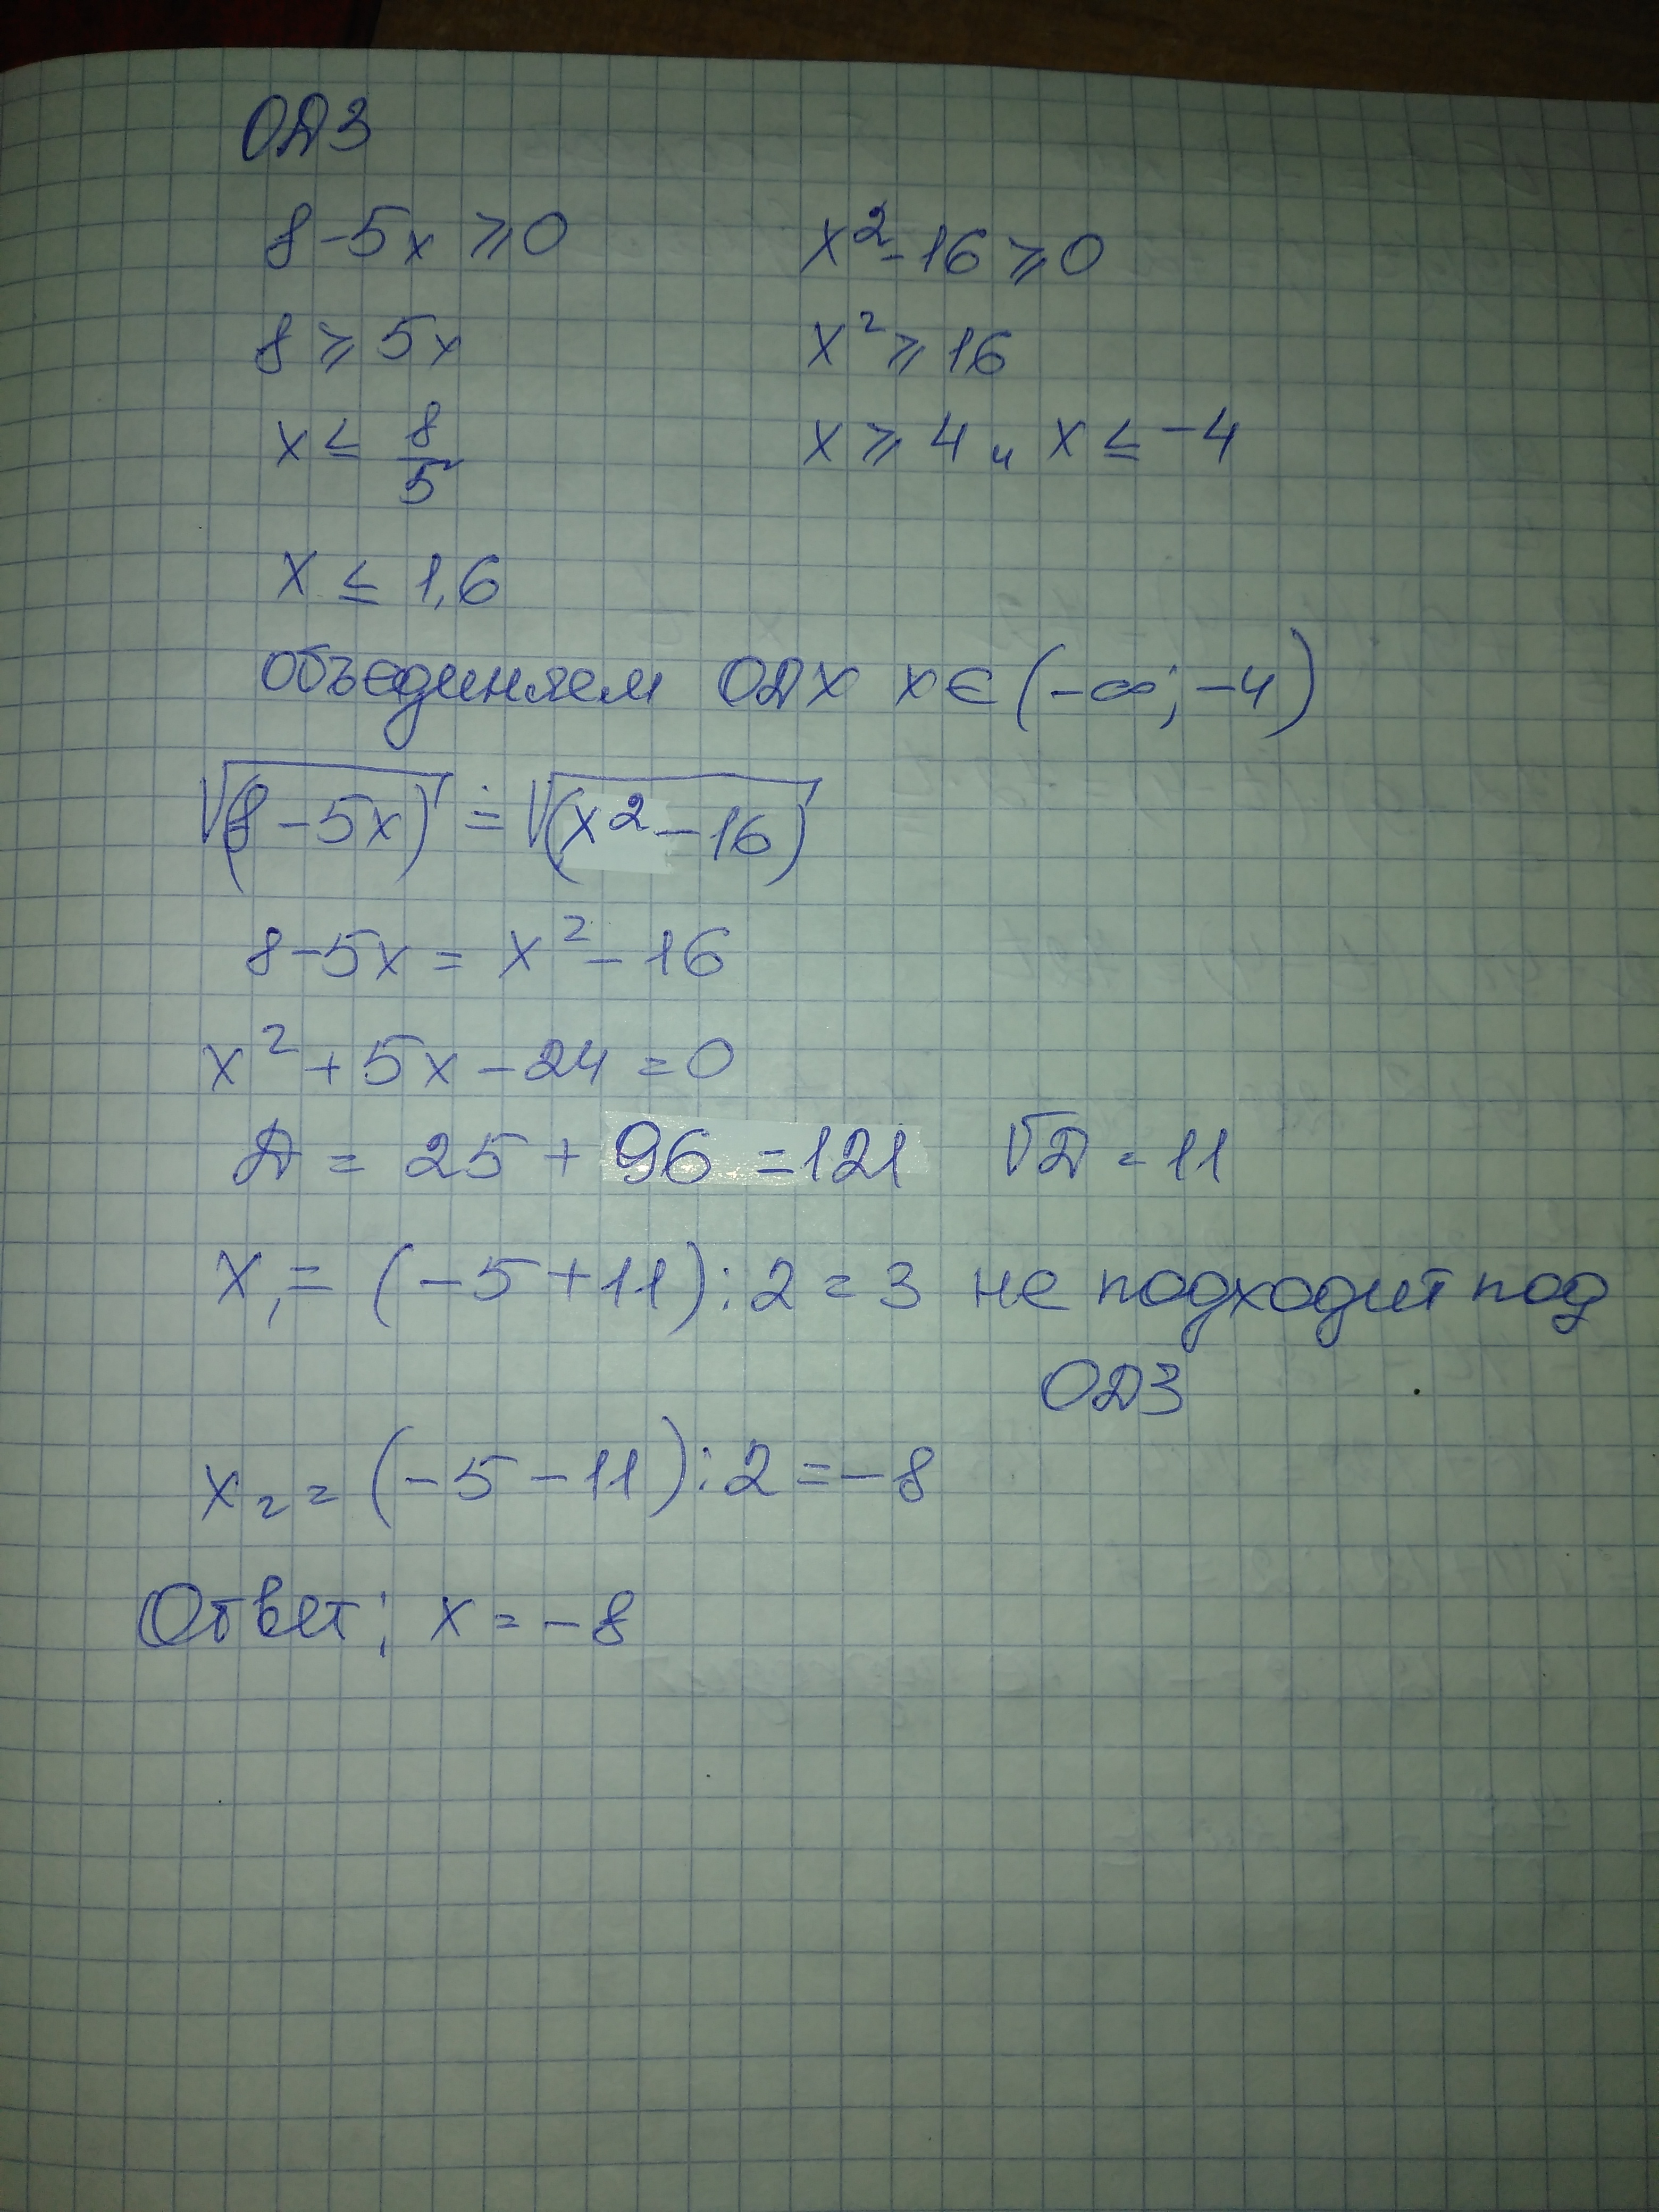 ОДЗ
8-5x ⩾0
x²-16⩾0
8 ⩾ 5x
x² ⩾ 16
x ≤ 8/5
x ⩾ 4 и x ≤ -4
x ≤ 1,6
объединяем ОДX x∈(-∞; -4)
√(8-5x) = √(x²-16)
8-5x = x²-16
x²+5x-24=0
Д = 25+96=121 √Д = 11
x₁= (-5+11):2=3 не подходит под
ОДЗ
x₂= (-5-11):2=-8
Ответ; x=-8